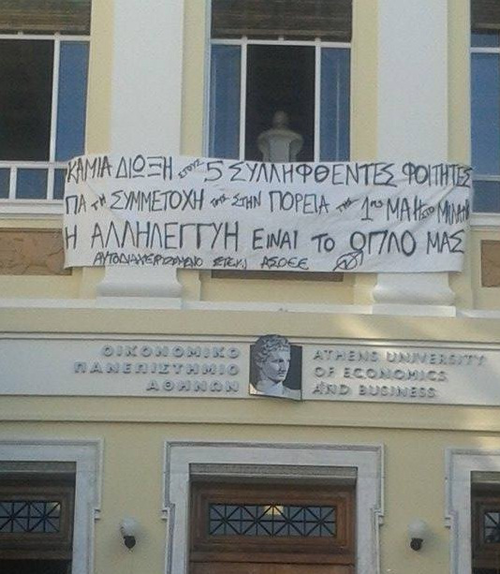 ΚΑΜΙΑ ΔΙΩΞΗ στους 5 ΣΥΛΛΗΦΘΕΝΤΕΣ ΦΟΙΤΗΤΕΣ
ΓΙΑ τη ΣΥΜΜΕΤΟΧΗ τους ΣΤΗΝ ΠΟΡΕΙΑ της 1ης ΜΑΗ στο ΜΙΛΑΝΟ
Η ΑΛΛΗΛΕΓΓΥΗ ΕΙΝΑΙ ΤΟ ΟΠΛΟ ΜΑΣ
ΑΥΤΟΔΙΑΧΕΙΡΙΖΟΜΕΝΟ ΣΤΕΚΙ ΑΣΟΕΕ
ΟΙΚΟΝΟΜΙΚΟ
ΠΑΝΕΠΙΣΤΗΜΙΟ
ΑΘΗΝΩΝ
ATHENS UNIVERSITY
OF ECONOMICS
AND BUSINESS